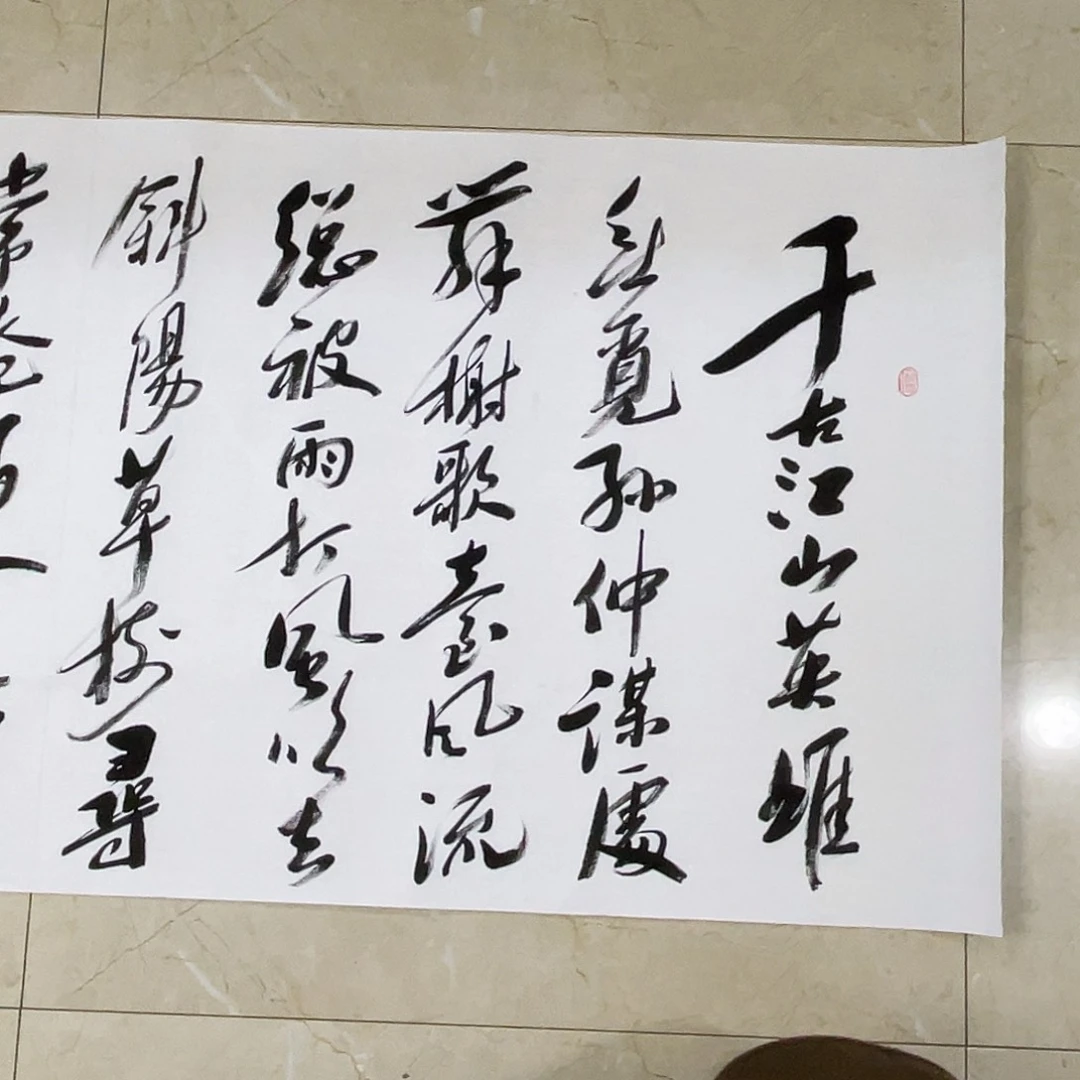 千古江山英雄
無覓孫仲謀處
舞榭歌臺風流
總被雨打風吹去
斜陽草樹尋
常巷陌人